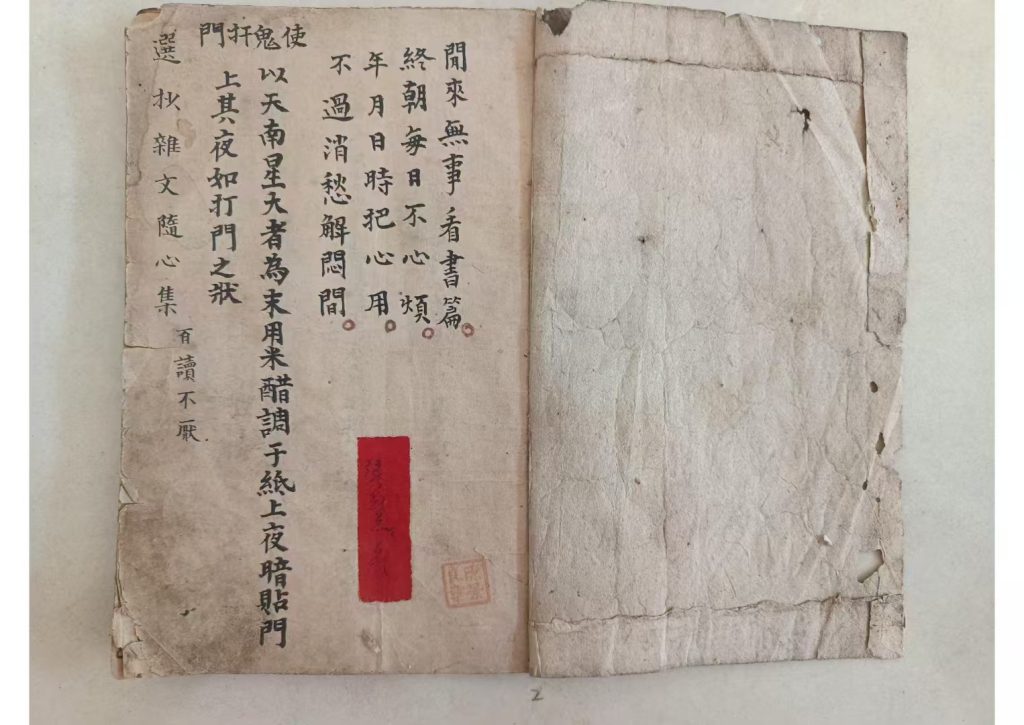 閒來無事看書篇
終朝每日不心煩
年月日時把心用
不過消愁解悶間
使鬼扞門
以天南星大者為末用米醋調于紙上夜暗貼門
上其夜如打門之狀
選抄雜文隨心集
百讀不厭
2